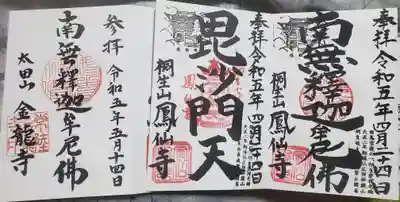 奉拝 令和五年四月二十四日
南無釋迦牟尼佛
桐生山 鳳仙寺
奉拝 令和五年四月二十四日
毘沙門天
桐生山 鳳仙寺
参拝 令和五年五月十四日
南無釋迦牟尼佛
太田山 金龍寺